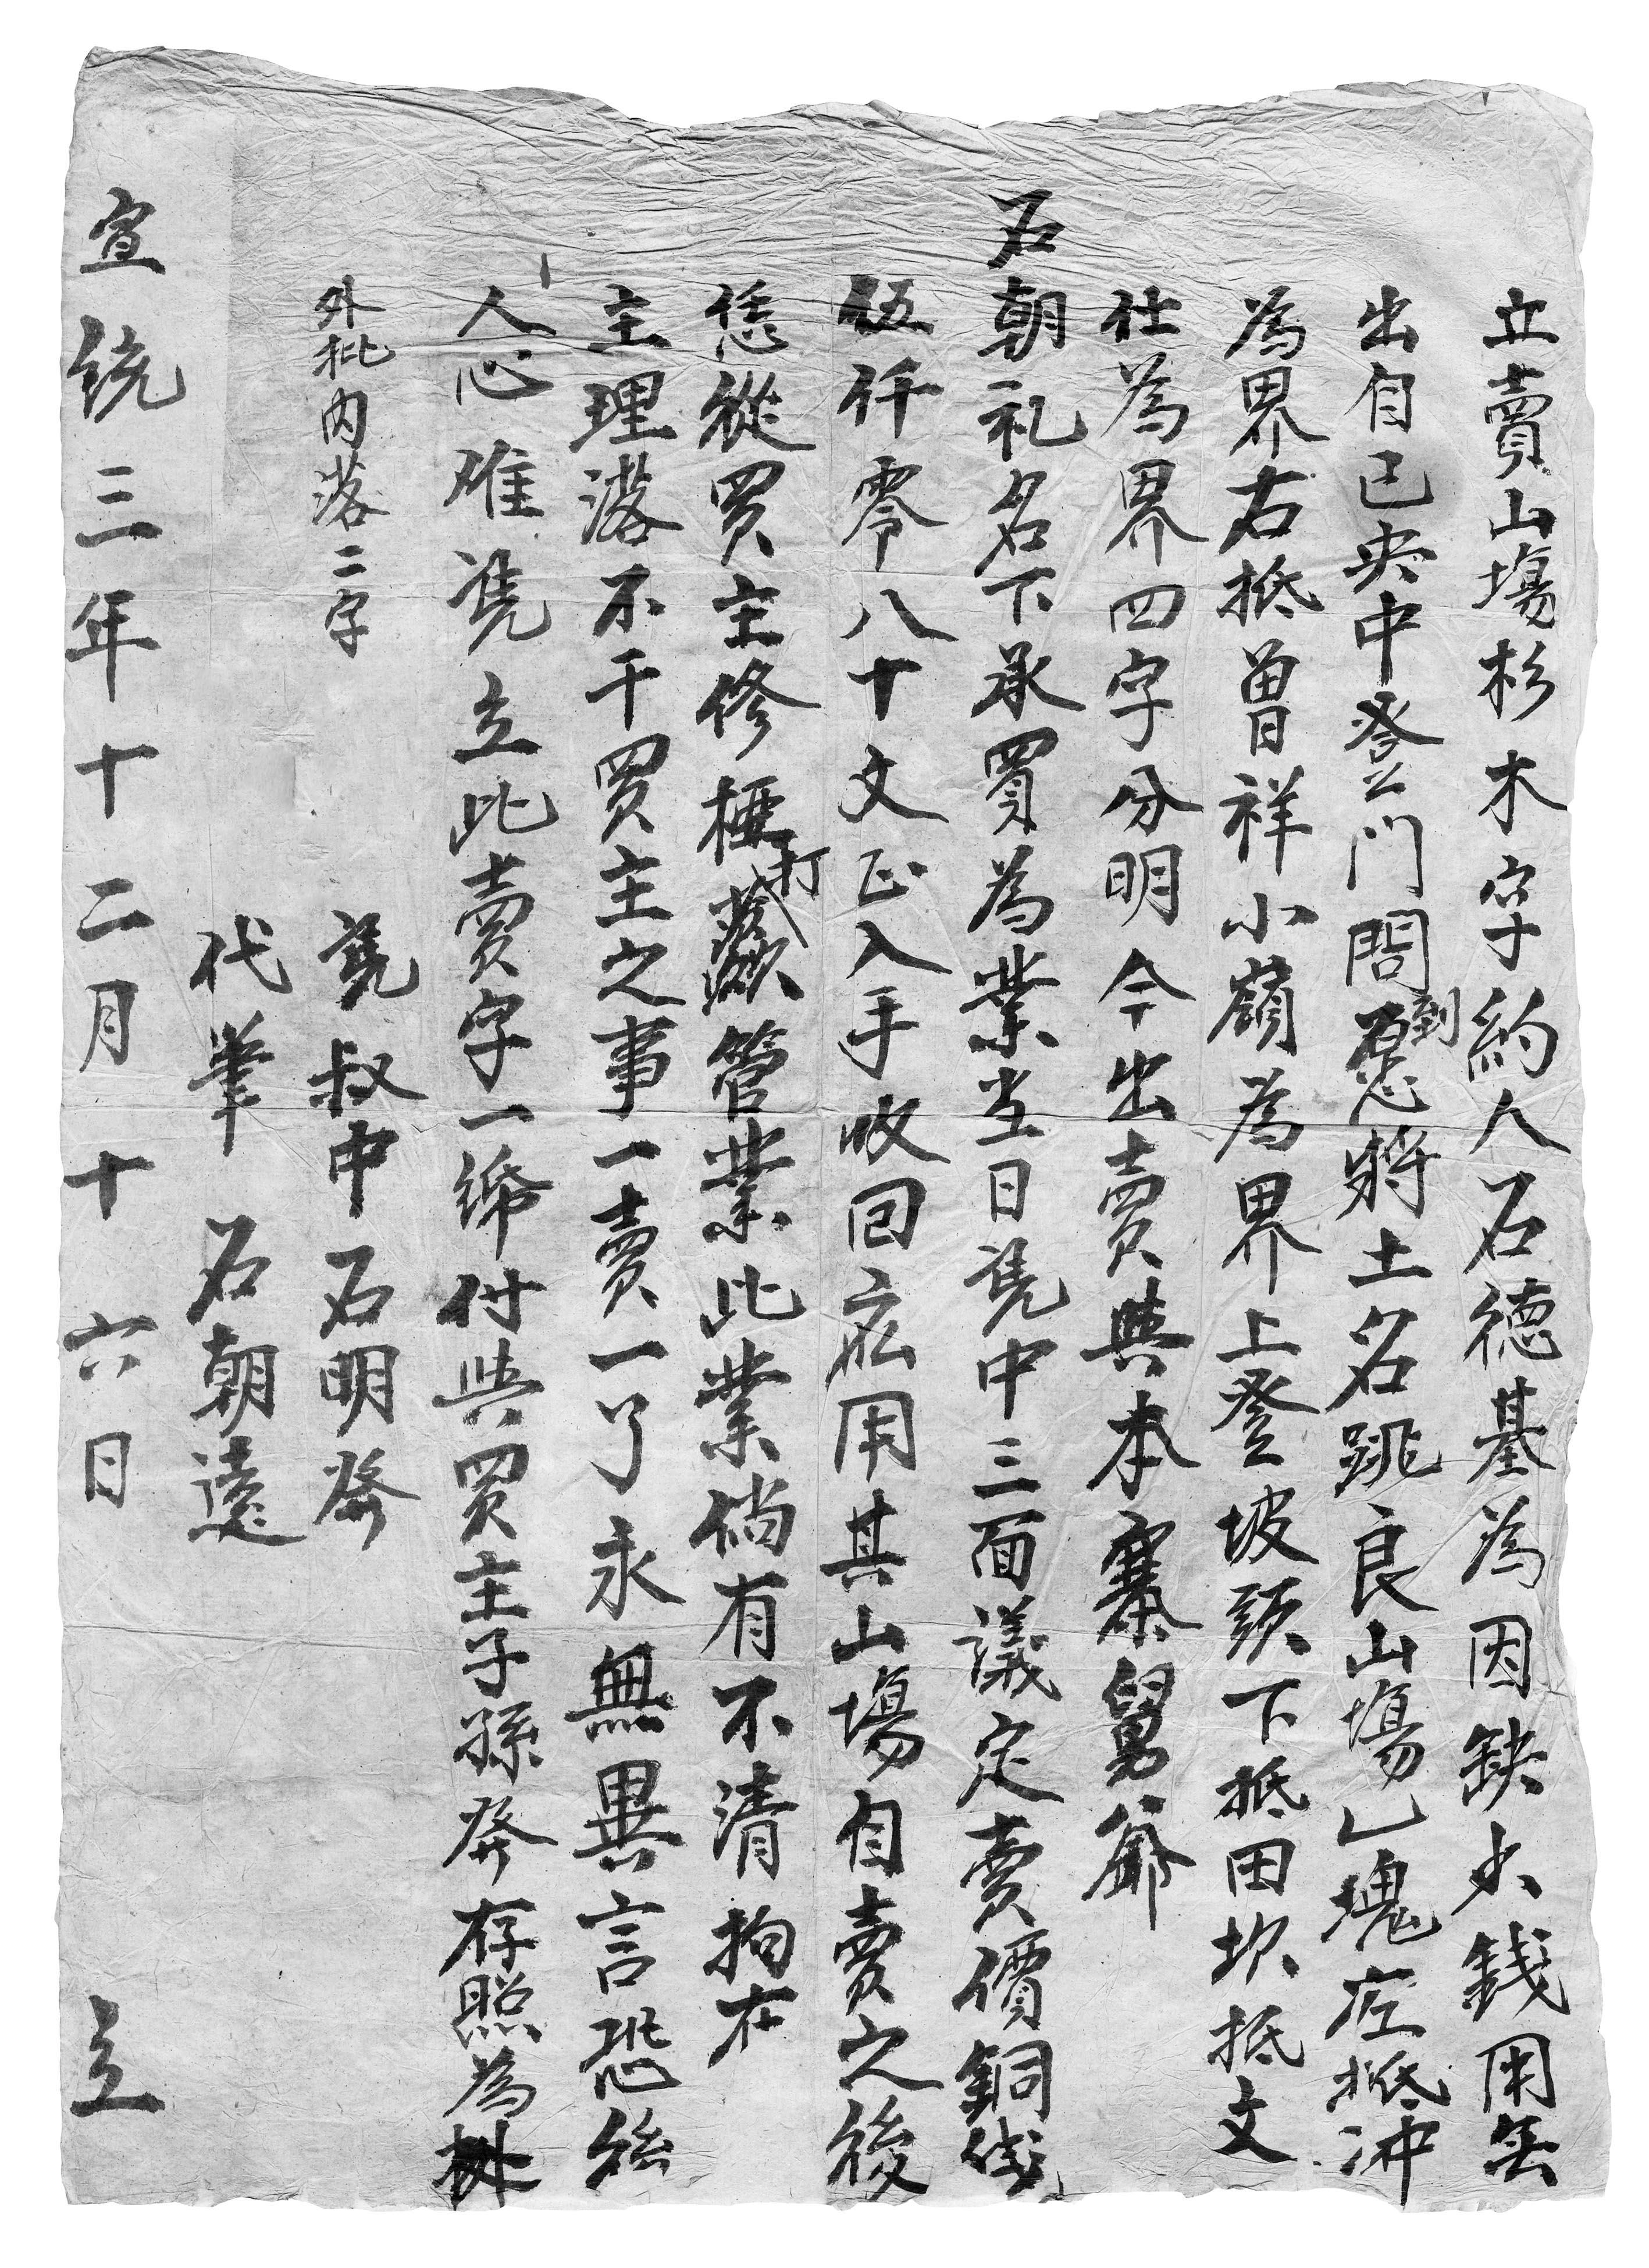 立賣山塲杉木字約人石德基為因缺少錢用無
出自己央中登門問到愿將土名跳良山塲乚塊左抵冲
為界右抵曾日祥小嶺為界上登坡頭下抵田坎抵文
仕為界四字分明今出賣與本寨舅爺
石朝礼名下承買為業当日凴中三面議定賣價銅钱
伍仟零八十文正入手收回應用其山塲自賣之後
恁從買主修理打蔸管業此業倘有不清拘在
主理落不干買主之事一賣一了永無異言恐後
人心难凴立此賣字一紙付與買主子孫發存照為據
外批内落二字
凴叔中石明發
代筆石朝遠
宣统三年十二月十六日立